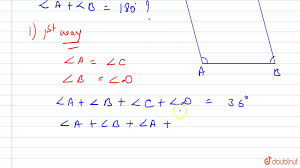 ∠A + ∠B = 180° ?
1) 1st way
∠A = ∠C
∠B = ∠D
∠A + ∠B + ∠C + ∠D = 36°
∠A + ∠B + ∠A +
A B
doubtnut